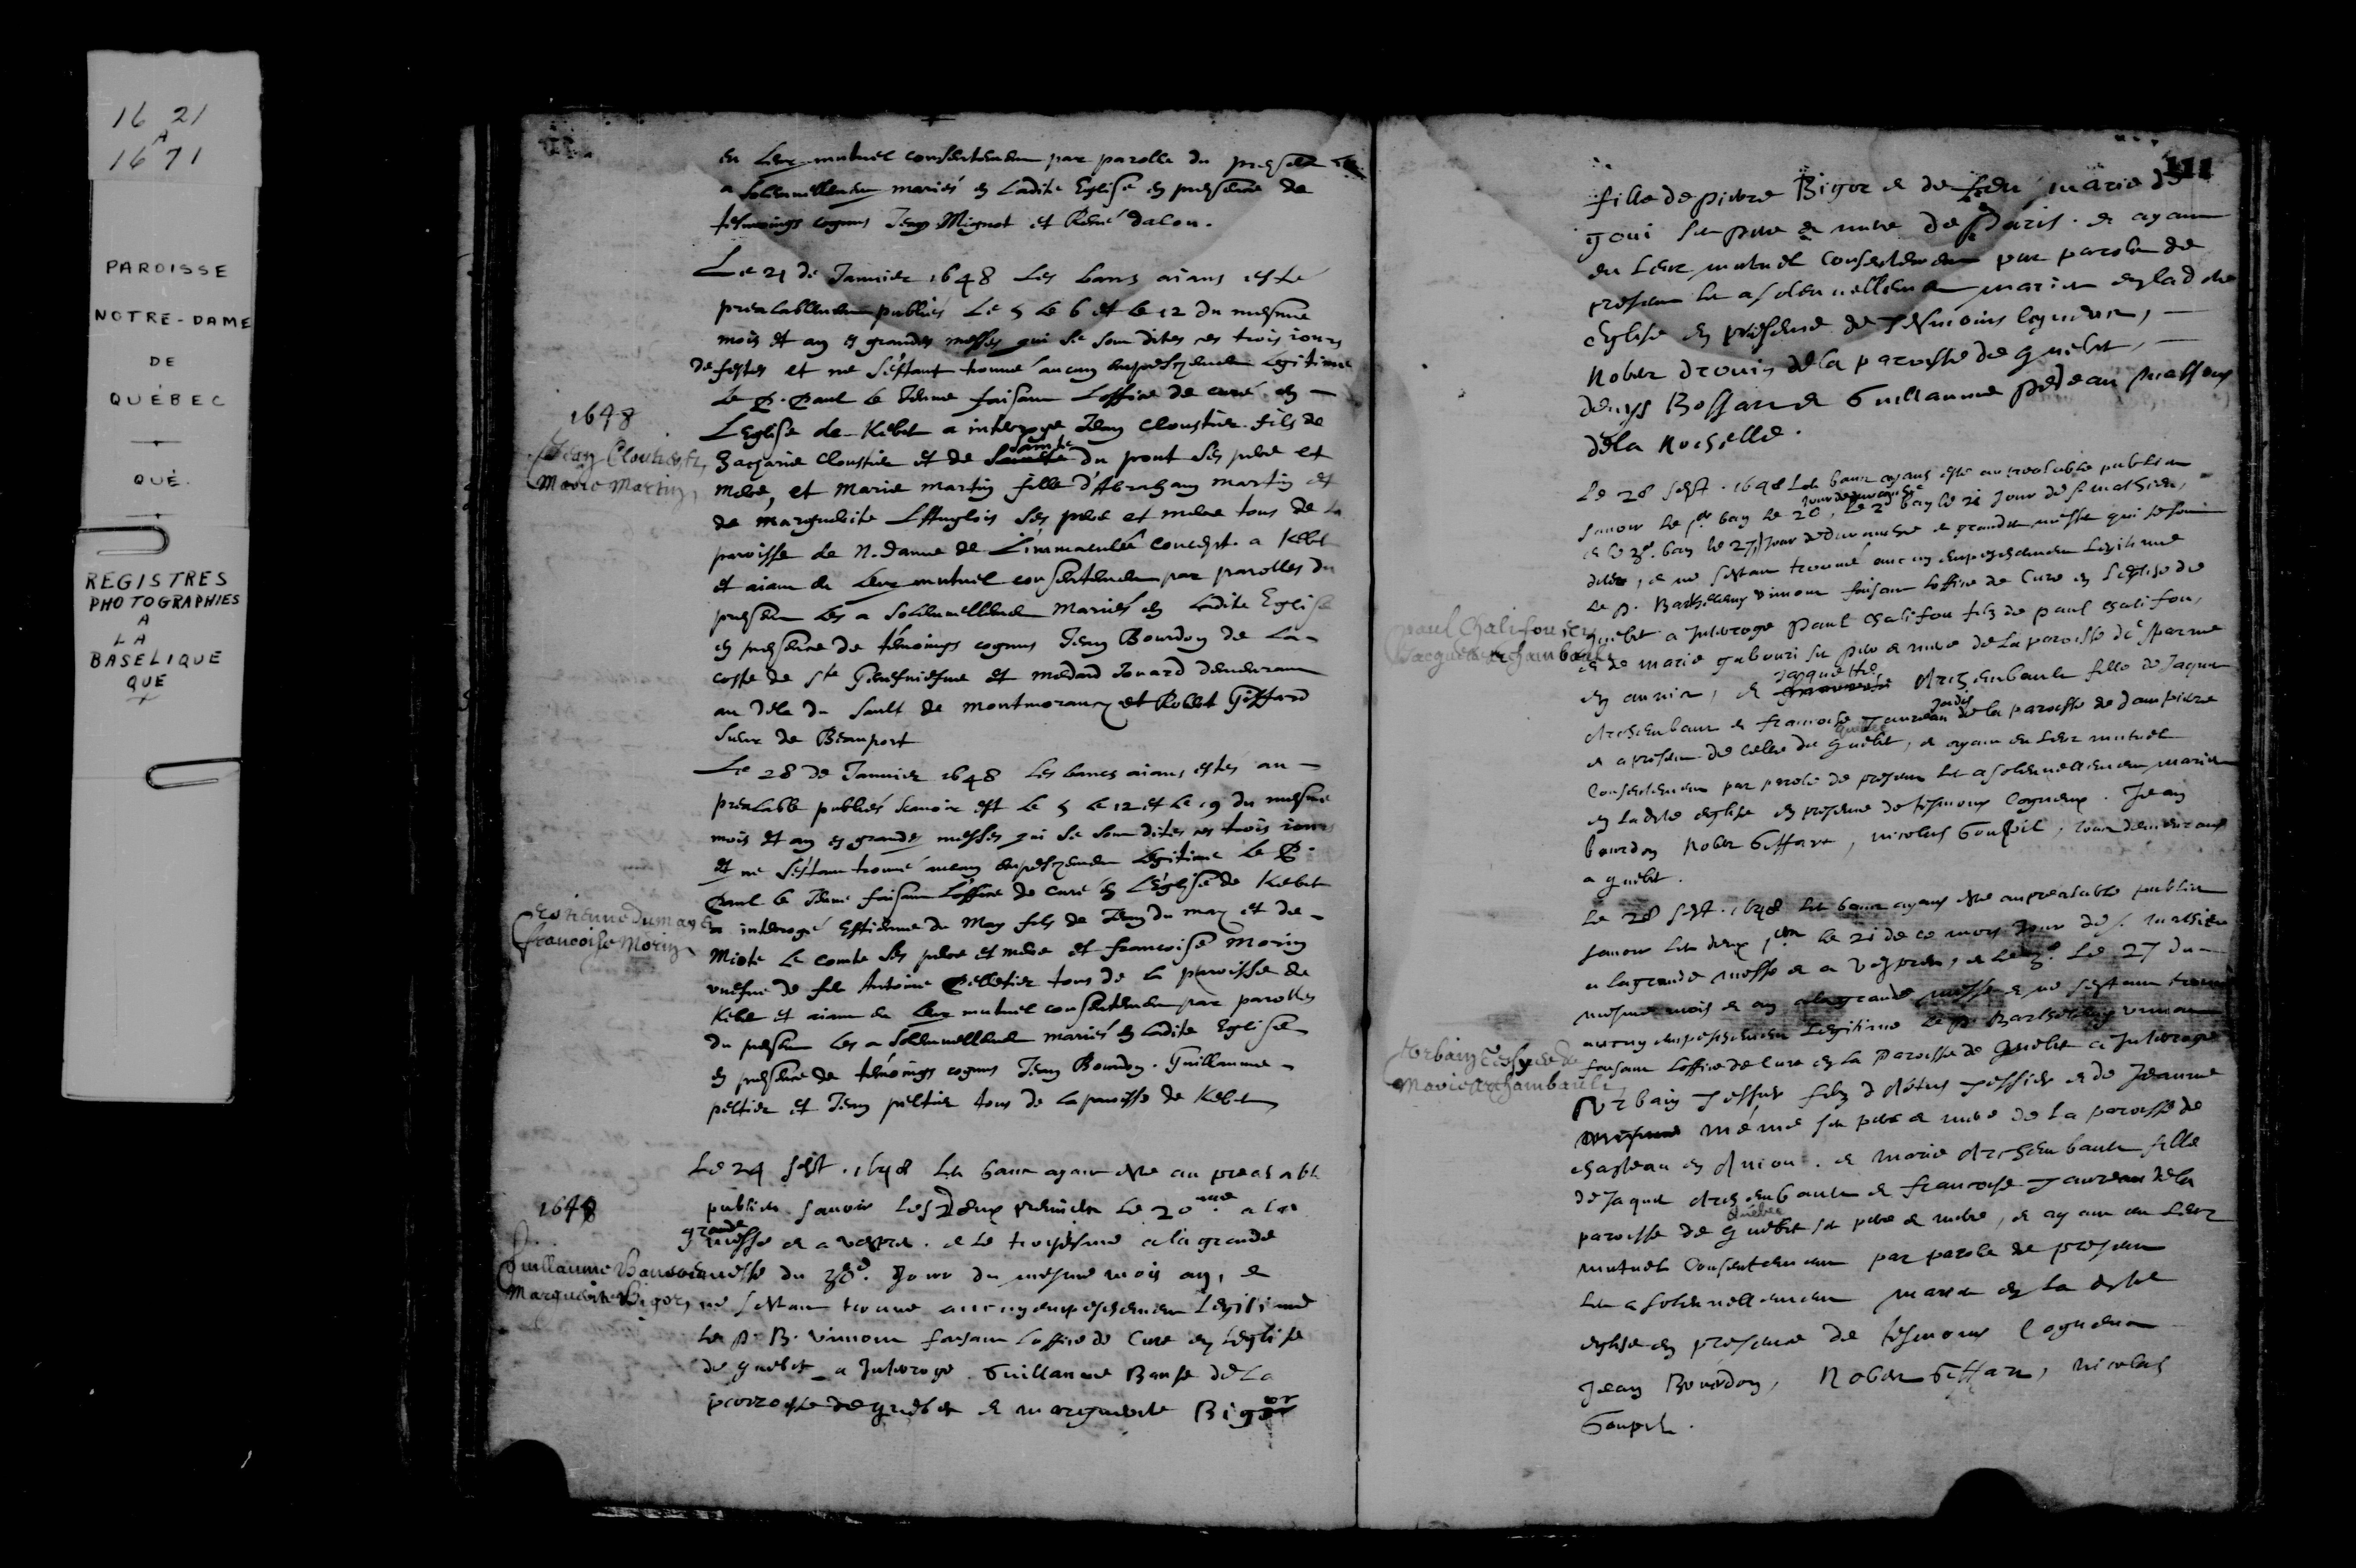 16 21
A
16 71
PAROISSE
NOTRE-DAME
DE
QUÉBEC
QUÉ.
REGISTRES
PHOTOGRAPHIES
A
LA
BASELIQUE
QUE
eu leur mutuel consentemen par parolle du presen les
a solemnellemen mariés en ladite Eglise en presence de
tesmoings cognus Jean Mignot et René
Le 21 de Janvier 1648 les bans aians esté
prealablemen publiés le 5 le 6 et le 12 du mesme
mois et an es grandes messes qui se son dites ces trois iours
de festes et ne s'estant trouvé aucun empeschemen legitime
le P. Paul le Jeune faisant l'office de curé en
1648
L'Eglise de Kebec a interrogé Jean Cloustier fils de
Jean Cloutier et
Zacharie Cloustier et de Sainte du pont ses pere et
Marie Martin
mere, et Marie Martin fille d'Abraham Martin et
de Marguerite Langlois ses pere et mere tous de la
paroisse de N. Dame de L'immaculée Concept. a Kebec
et aiant eu leur mutuel consentemen par parolles du
presen les a solemnellemen mariés en ladite Eglise
en presence de témoings cognus Jean Bourdon de la
coste de Ste Geneviefve et
au dela du Sault de Montmorancy et Robert Giffard
Sieur de Beauport
Le 28 de Janvier 1648 les bancs aians estés au
prealable publiés scavoir est le 5 le 12 et le 19 du mesme
mois et an es grandes messes qui se son dites ces trois iours
et ne s'estant trouvé aucun empeschemen legitime le P.
Paul le Jeune faisant l'office de curé en L'Eglise de Kebec
Estienne Dumay et
a interrogé Estienne du May fils de Jean du may et de
Francoise Morin
le comte ses pere et mere et francoise Morin
vuefve de feu Antoine Pelletier tous de la paroisse de
Kebec et aiant eu leur mutuel consentemen par parolles
du presen les a solemnellemen mariés en ladite Eglise
en presence de témoings cognus Jean Bourdon. Guillaume
peltier et Jean peltier tous de la paroisse de Kebec
Le 24 Sept. 1648 les bans ayant este au preaable
publies scavoir les deux premiers le 20 a la
1648
grande
messe et a vespres. et le troisiesme a la grande
Guillaume Bance et
messe du jour du mesme mois an, et
Marguerite Bigor,
ne sestant trouvé aucun empeschemen legitime
le P. B. vimont faisant l'office de Curé en l'eglise
de quebec a interrogé Guillaume Banse de la
parroisse de quebec et marguerite Bigor
111
fille de pierre Bigor et de feu marie de
ses pere et mere de Paris. et ayant
eu leur mutuel consentemen par parole de
presen les a solemnellemen mariez en lad ite
eglise en presence de tesmoins cogneus,
Rober Drouin de la paroisse de quebec,
denys et Guillaume
de la Rochelle.
Le 28 Sept. 1648 les bans ayans esté au prealable publiez
jour de dimanche
scavoir le per ban le 20, le 2 ban le 21 jour de S. Mathieu,
et le 3e. ban le 27, jour de dimanche a grande messe qui se sont
dites, et ne s'estant trouvé aucun empeschemen legitime
le P. Barthelemy vimont faisant l'office de Curé en l'eglise de
Paul Chalifou et
quebec a interrogé Paul Chalifou filz de paul chalifou,
Jacquette Archambault
et de marie gabouri ses pere et mere de la paroisse de
Jacquette
et Archenbault fille de Jaques
Jadis
Archenbault et francoise Taureau de la paroisse de dampierre
Quebec
et a presen de celle de quebec, et ayant eu leur mutuel
consentemen par parole de presen les a solemnellemen mariez
en ladite eglise en presence de tesmoins cogneux. Jean
bourdon Rober Giffard, nicolas Goupil, tous demeurans
a quebec.
Le 28 Sept. 1648 les bans ayans esté au prealable publiez
scavoir les deux per le 21 de ce mois jour de S. Mathieu
a la grande messe et a vespres, et le 3e. le 27 du
mesme mois et an a la grande messe et ne sestant trouvé
aucun empeschemen legitime le P. Barthelemy vimont
Urbain Tessier et
faisant l'office de Curé en la paroisse de quebec a interrogé
Marie Archambault
Urbain Tessier filz d'Artus Tessier et de Jeanne
même ses pere et mere de la paroisse de
chasteau en Aniou. et marie Archenbault fille
de Jaques Archenbault et francoise Taureau de la
Québec
paroisse de quebec ses pere et mere, et ayant eu leur
mutuel consentemen par parole de presen
les a solemnellemen mariez en la dite
eglise en presence de tesmoins cogneux
Jean Bourdon, Rober Giffar, nicolas
Goupil.